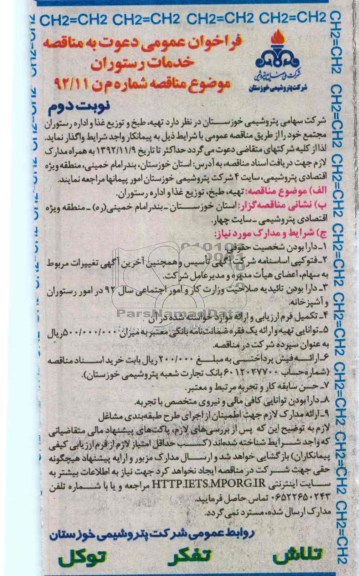 CH2=CH2 CH2=CH2 CH2=CH2 CH2=CH2 CH2=CH2
فراخوان عمومی دعوت به مناقصه
خدمات رستوران
موضوع مناقصه شماره م ن ۹۲/۱۱
شرکت پتروشیمی خوزستان
نوبت دوم
شرکت سهامی پتروشیمی خوزستان در نظر دارد تهیه، طبخ و توزیع غذا و اداره رستوران
مجتمع خود را از طریق مناقصه عمومی با شرایط ذیل به پیمانکار واجد شرایط واگذار نماید.
لذا از کلیه شرکتهای متقاضی دعوت می گردد حداکثر تا تاریخ ۱۳۹۲/۱۱/۹ به همراه مدارک
لازم جهت دریافت اسناد مناقصه، به آدرس: استان خوزستان، بندرامام خمینی، منطقه ویژه
اقتصادی پتروشیمی، سایت ۴ شرکت پتروشیمی خوزستان امور پیمانها مراجعه نمایند.
الف) موضوع مناقصه: تهیه، طبخ، توزیع غذا و اداره رستوران.
ب) نشانی مناقصه گزار: استان خوزستان - بندرامام خمینی(ره) - منطقه ویژه
اقتصادی پتروشیمی - سایت چهار.
ج) شرایط و مدارک مورد نیاز:
۱- دارا بودن شخصیت حقوقی
۲- فتوکپی اساسنامه شرکت آگهی تأسیس و همچنین آخرین آگهی تغییرات مربوط
به سهام، اعضای هیأت مدیره و مدیرعامل شرکت.
۳- دارا بودن تائیدیه صلاحیت وزارت کار و امور اجتماعی سال ۹۲ در امور رستوران
و آشپزخانه.
۴- تکمیل فرم ارزیابی و ارائه موارد
۵- توانایی تهیه و ارائه یک فقره ضمانت نامه بانکی معتبر به میزان ۵۰۰/۰۰۰/۰۰۰ ریال
به عنوان سپرده شرکت در مناقصه.
۶- ارائه فیش پرداختی به مبلغ ۲۰۰/۰۰۰ ریال بابت خرید اسناد مناقصه
(شماره حساب ۶۰۱۲۰۲۷۷۰۰ بانک تجارت شعبه پتروشیمی خوزستان).
۷- حسن سابقه کار و تجربه مرتبط و معتبر.
۸- دارا بودن توانایی کافی مالی و نیروی متخصص با تجربه.
۹- ارائه مدارک لازم جهت اطمینان از اجرای طرح طبقه بندی مشاغل
لازم به توضیح این که پس از بررسی های لازم، پاکت های پیشنهاد مالی متقاضیانی
که واجد شرایط شناخته شده اند (کسب حداقل امتیاز لازم از فرم ارزیابی کیفی
پیمانکاران) بازگشایی خواهد شد و ارسال مدارک مزبور و ارایه پیشنهاد هیچگونه
حقی جهت شرکت در مناقصه ایجاد نخواهد کرد جهت نیاز به اطلاعات بیشتر به
سایت اینترنتی HTTP.IETS.MPORG.IR مراجعه و یا با شماره تلفن
۰۶۵۲۲۶۵۰۲۴۳ تماس حاصل فرمایید.
مدارک ارسال شده، مسترد نمی گردد.
روابط عمومی شرکت پتروشیمی خوزستان
تلاش تفکر توکل